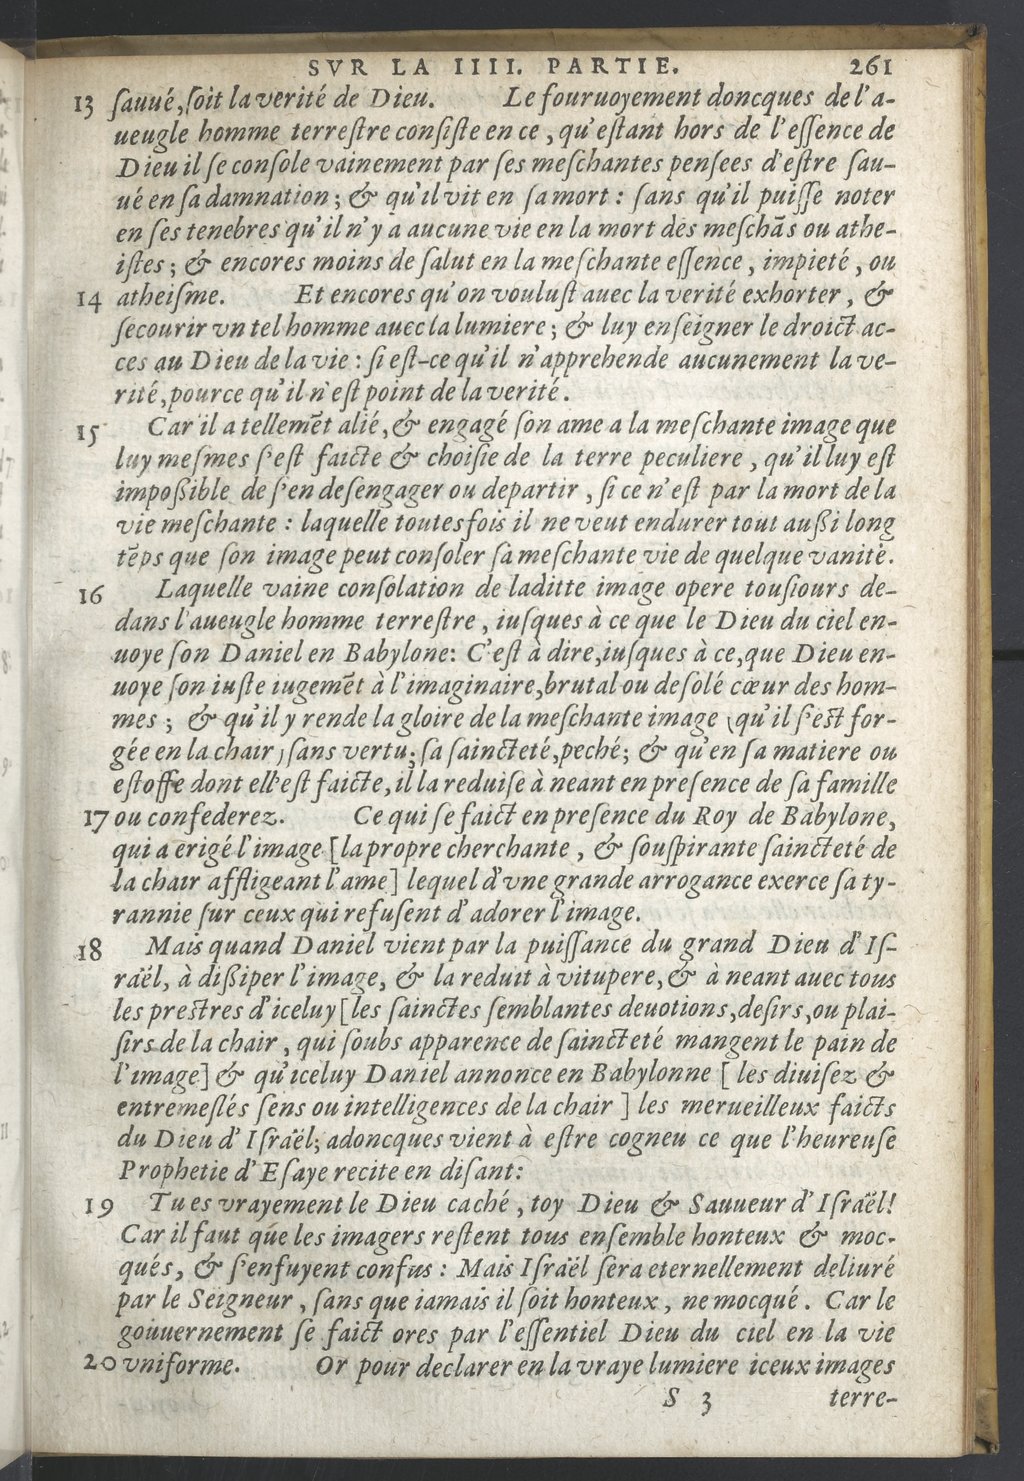 SVR LA IIII. PARTIE. 261
13 ſauué, ſoit la verité de Dieu. Le fouruoyement doncques de l'a-
ueugle homme terreſtre conſiſte en ce, qu'eſtant hors de l'eſſence de
Dieu il ſe conſole vainement par ſes meſchantes penſees d'eſtre ſau-
ué en ſa damnation; & qu'il vit en ſa mort: ſans qu'il puiſſe noter
en ſes tenebres qu'il n'y a aucune vie en la mort des meſchãs ou athe-
iſtes; & encores moins de ſalut en la meſchante eſſence, impieté, ou
14 atheiſme. Et encores qu'on vouluſt auec la verité exhorter, &
ſecourir vn tel homme auec la lumiere; & luy enſeigner le droict ac-
ces au Dieu de la vie: ſi eſt-ce qu'il n'apprehende aucunement la ve-
rité, pource qu'il n'eſt point de la verité.
15 Car il a tellemẽt alié, & engagé ſon ame a la meſchante image que
luy meſmes s'eſt faicte & choiſie de la terre peculiere, qu'il luy eſt
impoßible de s'en deſengager ou departir, ſi ce n'eſt par la mort de la
vie meſchante: laquelle toutesfois il ne veut endurer tout außi long
tẽps que ſon image peut conſoler ſa meſchante vie de quelque vanité.
16 Laquelle vaine conſolation de laditte image opere touſiours de-
dans l'aueugle homme terreſtre, iuſques à ce que le Dieu du ciel en-
uoye ſon Daniel en Babylone: C'eſt à dire, iuſques à ce, que Dieu en-
uoye ſon iuſte iugemẽt à l'imaginaire, brutal ou deſolé cœur des hom-
mes; & qu'il y rende la gloire de la meſchante image (qu'il s'eſt for-
gée en la chair) ſans vertu; ſa ſaincteté, peché; & qu'en ſa matiere ou
eſtoffe dont ell'eſt faicte, il la reduiſe à neant en preſence de ſa famille
17 ou confederez. Ce qui ſe faict en preſence du Roy de Babylone,
qui a erigé l'image [la propre cherchante, & ſouſpirante ſaincteté de
la chair affligeant l'ame] lequel d'vne grande arrogance exerce ſa ty-
rannie ſur ceux qui refuſent d'adorer l'image.
18 Mais quand Daniel vient par la puiſſance du grand Dieu d'Iſ-
raël, à dißiper l'image, & la reduit à vitupere, & à neant auec tous
les preſtres d'iceluy [les ſainctes ſemblantes deuotions, deſirs, ou plai-
ſirs de la chair, qui ſoubs apparence de ſaincteté mangent le pain de
l'image] & qu'iceluy Daniel annonce en Babylonne [les diuiſez &
entremeſlés ſens ou intelligences de la chair] les merueilleux faicts
du Dieu d'Iſraël; adoncques vient à eſtre cogneu ce que l'heureuſe
Prophetie d'Eſaye recite en diſant:
19 Tu es vrayement le Dieu caché, toy Dieu & Sauueur d'Iſraël!
Car il faut que les imagers reſtent tous enſemble honteux & moc-
qués, & s'enfuyent confus: Mais Iſraël ſera eternellement deliuré
par le Seigneur, ſans que iamais il ſoit honteux, ne mocqué. Car le
gouuernement ſe faict ores par l'eſſentiel Dieu du ciel en la vie
20 vniforme. Or pour declarer en la vraye lumiere iceux images
S 3 terre-